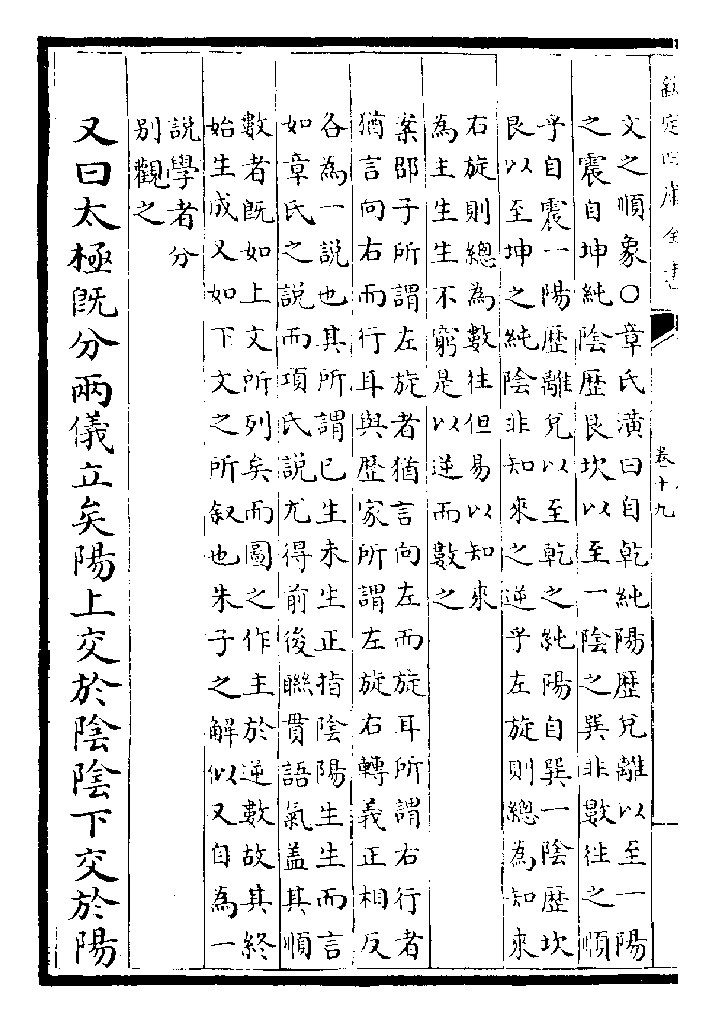 欽定四庫全書
卷十九
文之順象○章氏潢曰自乾純陽歷兌離以至一陽
之震自坤純陰歷艮坎以至一陰之巽非數往之順
乎自震一陽歷離兌以至乾之純陽自巽一陰歷坎
艮以至坤之純陰非知來之逆乎左旋則總為知來
右旋則總為數往但易以知來
為主生生不窮是以逆而數之
案邵子所謂左旋者猶言向左而旋耳所謂右行者
猶言向右而行耳與歷家所謂左旋右轉義正相反
各為一說也其所謂已生未生正指陰陽生生而言
如章氏之說而項氏說尤得前後聯貫語氣盖其順
數者旣如上文所列矣而圖之作主於逆數故其終
始生成又如下文之所叙也朱子之解似又自為一
說學者分
別觀之
又曰太極旣分兩儀立矣陽上交於陰陰下交於陽